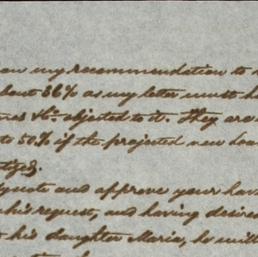 on my recommendation to
bout 36% as my letter must h
objected to it. They are
to 50% if the projected new loa
ized.
quote and approve your hav
his request, and having desire
his daughter Maria, he will